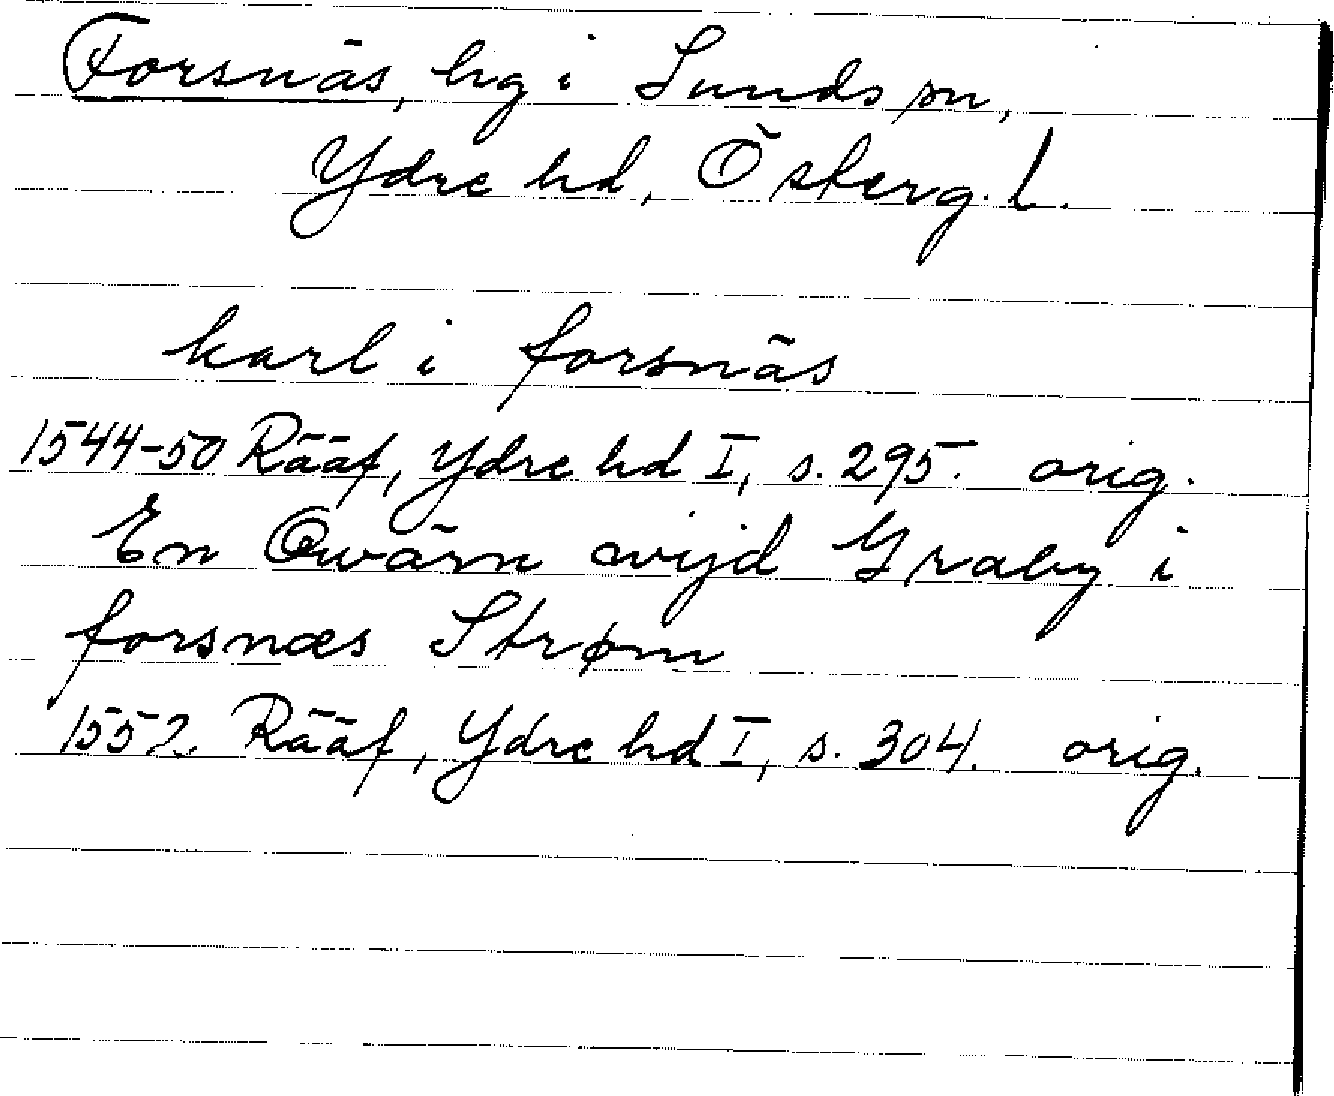 Forsnäs, hg i Sunds sn,
Ydre hd, Österg. l.
karl i forsnäs
1544-50 Rääf, Ydre hd I, s. 295. orig.
En Qwärn wijd Graby i
forsnæs Strøm
1552. Rääf, Ydre hd I, s. 304. orig.